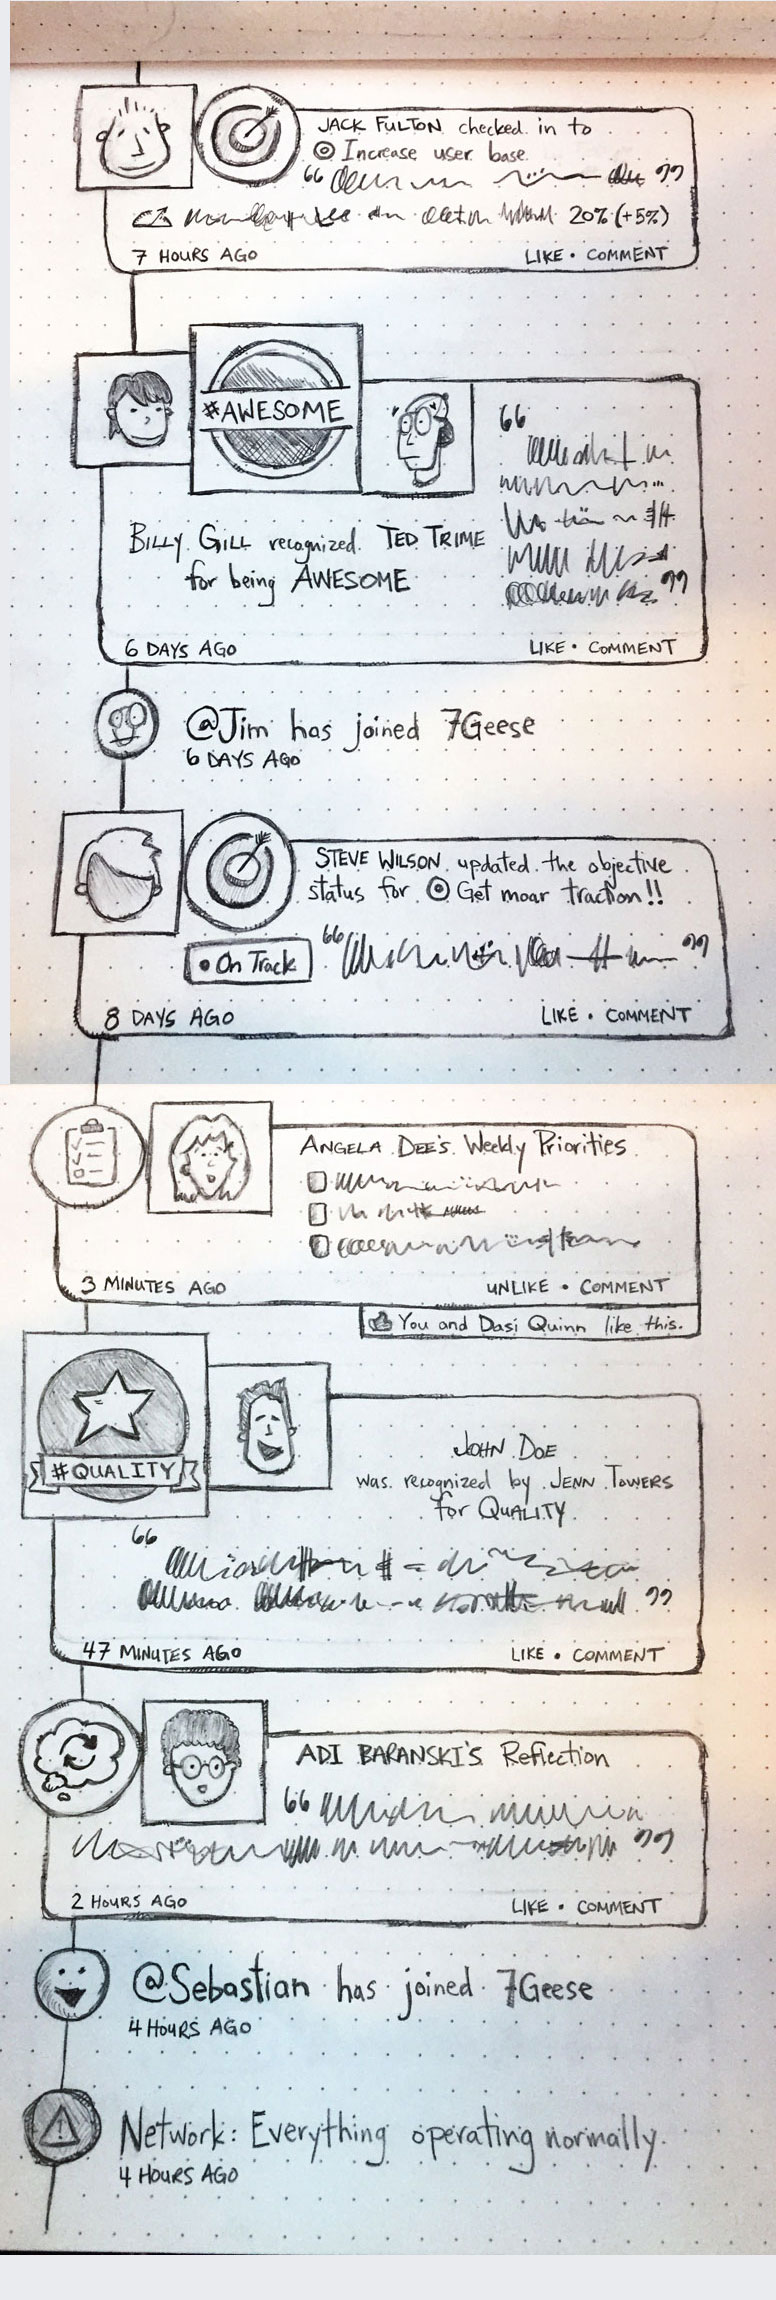 JACK FULTON checked in to
Increase user base
“ ”
20% (+5%)
7 HOURS AGO LIKE • COMMENT
#AWESOME
“
BILLY GILL recognized TED TRIME
for being AWESOME
”
6 DAYS AGO LIKE • COMMENT
@Jim has joined 7Geese
6 DAYS AGO
STEVE WILSON updated the objective
status for Get moar traction!!
• On Track “ ”
8 DAYS AGO LIKE • COMMENT
ANGELA DEE'S Weekly Priorities
3 MINUTES AGO UNLIKE • COMMENT
You and Dasi Quinn like this.
#QUALITY
JOHN DOE
was recognized by JENN TOWERS
for QUALITY
“ ”
47 MINUTES AGO LIKE • COMMENT
ADI BARANSKI'S Reflection
“ ”
2 HOURS AGO LIKE • COMMENT
@Sebastian has joined 7Geese
4 HOURS AGO
Network: Everything operating normally.
4 HOURS AGO